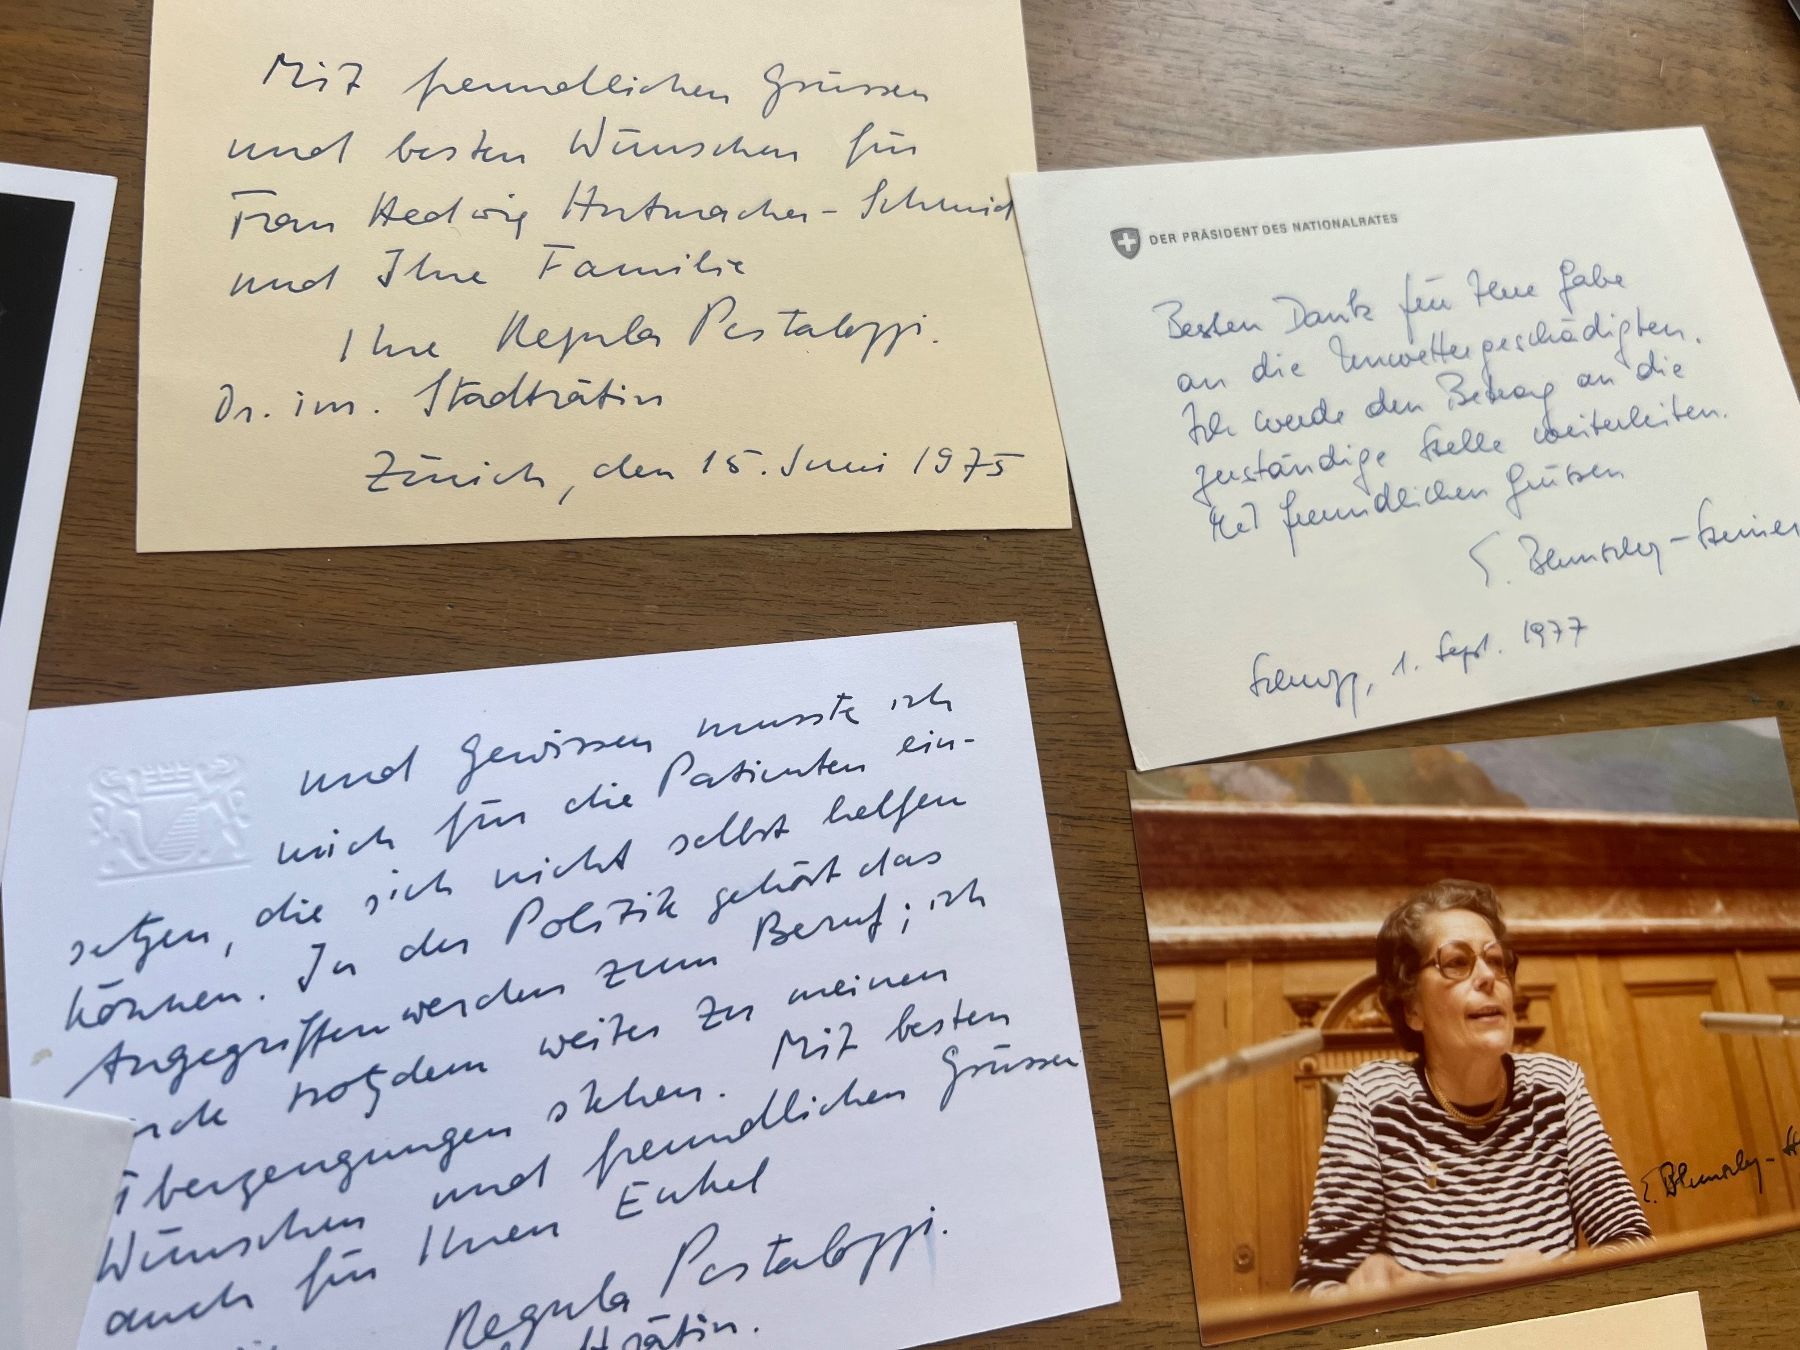 Mit freundlichen Grüssen
und besten Wünschen für
Frau Hedwig Hutmacher-Schmid
und Ihre Familie
Ihre Regula Pestalozzi.
Dr. iur. Stadträtin
Zürich, den 15. Juni 1975
DER PRÄSIDENT DES NATIONALRATES
Besten Dank für Ihre Gabe
an die Unwettergeschädigten.
Ich werde den Betrag an die
zuständige Stelle weiterleiten.
Mit freundlichen Grüssen
E. Blunschy-Steiner
Schwyz, 1. Sept. 1977
und Gewissen musste ich
mich für die Patienten ein-
setzen, die sich nicht selbst helfen
können. In der Politik gehört das
Angegriffenwerden zum Beruf; ich
trotzdem weiter zu meinen
Überzeugungen stehen. Mit besten
Wünschen und freundlichen Grüssen
auch für Ihren Enkel
Regula Pestalozzi.
trätin.
E. Blunschy-St